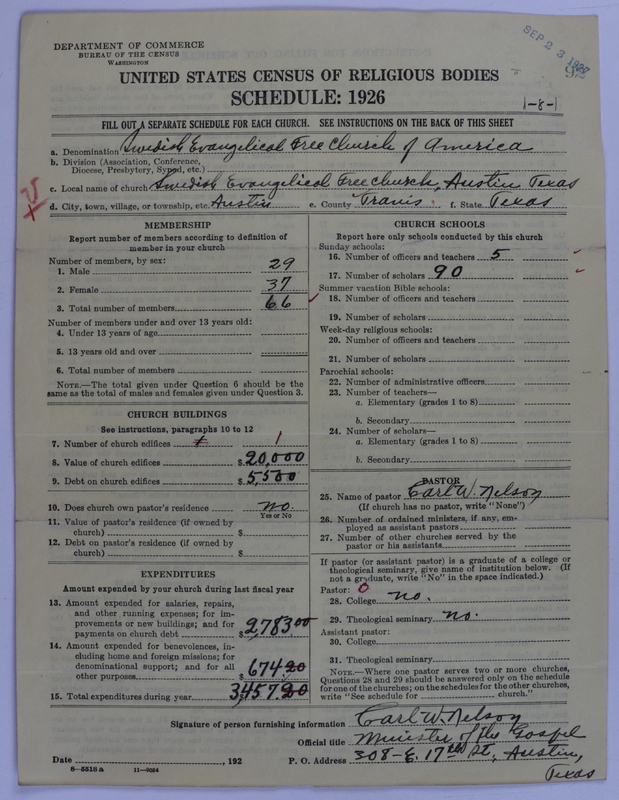 DEPARTMENT OF COMMERCE
BUREAU OF THE CENSUS
WASHINGTON
SEP 23 1927
UNITED STATES CENSUS OF RELIGIOUS BODIES
SCHEDULE: 1926
1-8-1
FILL OUT A SEPARATE SCHEDULE FOR EACH CHURCH. SEE INSTRUCTIONS ON THE BACK OF THIS SHEET
a. Denomination Swedish Evangelical Free Church of America
b. Division (Association, Conference,
Diocese, Presbytery, Synod, etc.)
c. Local name of church Swedish Evangelical Free Church, Austin Texas
d. City, town, village, or township, etc. Austin e. County Travis f. State Texas
MEMBERSHIP
Report number of members according to definition of
member in your church
Number of members, by sex:
1. Male 29
2. Female 37
3. Total number of members 66
Number of members under and over 13 years old:
4. Under 13 years of age
5. 13 years old and over
6. Total number of members
NOTE.—The total given under Question 6 should be the
same as the total of males and females given under Question 3.
CHURCH BUILDINGS
See instructions, paragraphs 10 to 12
7. Number of church edifices 1
8. Value of church edifices $20,000
9. Debt on church edifices $5,500
10. Does church own pastor's residence no.
Yes or No
11. Value of pastor's residence (if owned by
church) $
12. Debt on pastor's residence (if owned by
church) $
EXPENDITURES
Amount expended by your church during last fiscal year
13. Amount expended for salaries, repairs,
and other running expenses; for im-
provements or new buildings; and for
payments on church debt $2,783.00
14. Amount expended for benevolences, in-
cluding home and foreign missions; for
denominational support; and for all
other purposes $674.20
15. Total expenditures during year 3457.20
CHURCH SCHOOLS
Report here only schools conducted by this church
Sunday schools:
16. Number of officers and teachers 5
17. Number of scholars 90
Summer vacation Bible schools:
18. Number of officers and teachers
19. Number of scholars
Week-day religious schools:
20. Number of officers and teachers
21. Number of scholars
Parochial schools:
22. Number of administrative officers
23. Number of teachers—
a. Elementary (grades 1 to 8)
b. Secondary
24. Number of scholars—
a. Elementary (grades 1 to 8)
b. Secondary
PASTOR
25. Name of pastor Carl W. Nelson
(If church has no pastor, write "None")
26. Number of ordained ministers, if any, em-
ployed as assistant pastors
27. Number of other churches served by the
pastor or his assistants
If pastor (or assistant pastor) is a graduate of a college or
theological seminary, give name of institution below. (If
not a graduate, write "No" in the space indicated.)
Pastor: 0
28. College no.
29. Theological seminary no.
Assistant pastor:
30. College
31. Theological seminary
NOTE.—Where one pastor serves two or more churches,
Questions 28 and 29 should be answered only on the schedule
for one of the churches; on the schedules for the other churches,
write "See schedule for church."
Signature of person furnishing information Carl W. Nelson
Official title Minister of the Gospel
Date , 192 P. O. Address 308-E. 17th St., Austin,
Texas
8-5518 a 11-9024